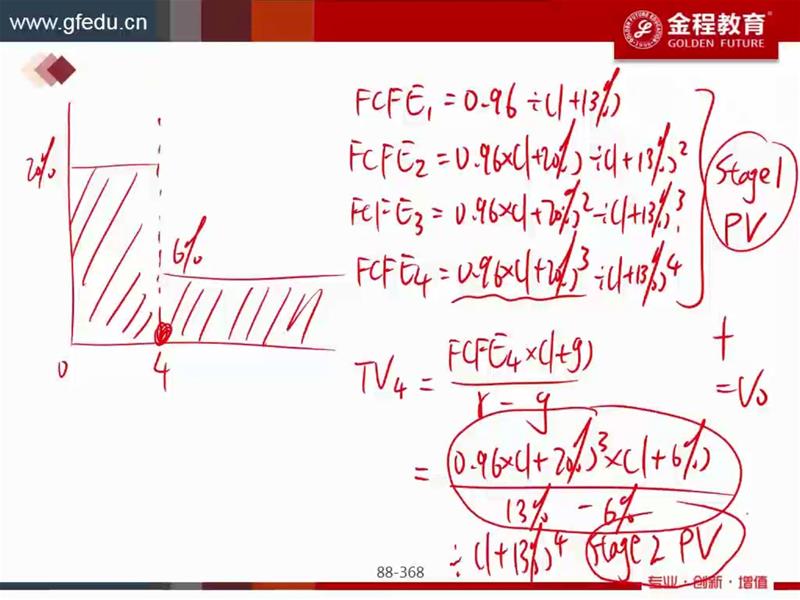 www.gfedu.cn
金程教育
GOLDEN FUTURE
20%
6%
0
4
FCFE₁ = 0.96 ÷ (1+13%)
FCFE₂ = 0.96×(1+20%) ÷ (1+13%)²
FCFE₃ = 0.96×(1+20%)² ÷ (1+13%)³
FCFE₄ = 0.96×(1+20%)³ ÷ (1+13%)⁴
Stage1
PV
+
= V₀
TV₄ = FCFE₄×(1+g)
r - g
= 0.96×(1+20%)³×(1+6%)
13% - 6%
÷ (1+13%)⁴ Stage 2 PV
88-368
专业·创新·增值